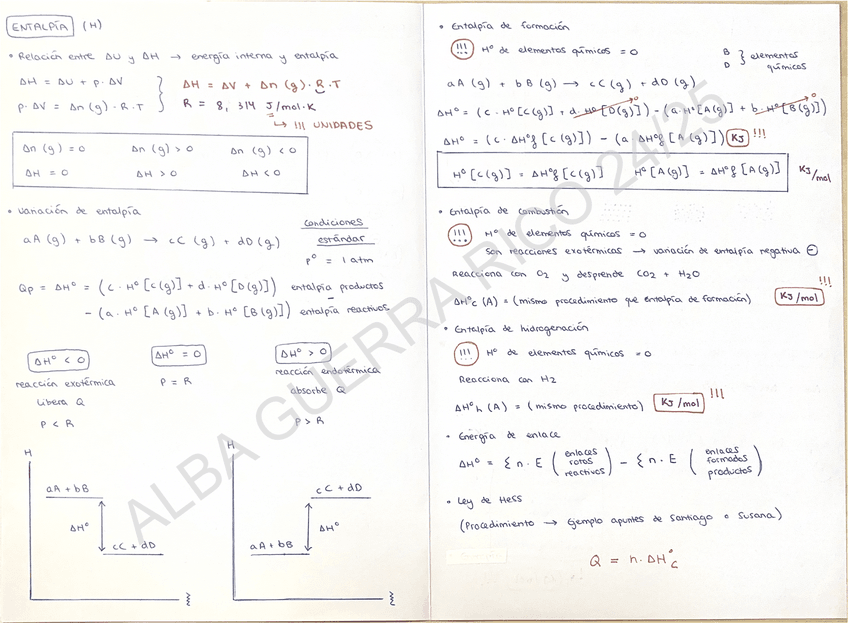 ENTALPÍA (H)
• Relación entre ΔU y ΔH → energía interna y entalpía
ΔH = ΔU + p·ΔV
p·ΔV = Δn(g)·R·T
ΔH = ΔV + Δn(g)·R·T
R = 8,314 J/mol·K
↳ !!! UNIDADES
Δn(g) = 0 Δn(g) > 0 Δn(g) < 0
ΔH = 0 ΔH > 0 ΔH < 0
• Variación de entalpía
aA(g) + bB(g) → cC(g) + dD(g)
Condiciones
estándar
pº = 1 atm
Qp = ΔHº = (c·Hº[C(g)] + d·Hº[D(g)]) entalpía productos
- (a·Hº[A(g)] + b·Hº[B(g)]) entalpía reactivos
ΔHº < 0 ΔHº = 0 ΔHº > 0
reacción exotérmica P = R reacción endotérmica
libera Q absorbe Q
P < R P > R
H H
aA + bB cC + dD
ΔHº ΔHº
cC + dD aA + bB
• Entalpía de formación
!!! Hº de elementos químicos = 0
B
D } elementos
químicos
aA(g) + bB(g) → cC(g) + dD(g)
ΔHº = (c·Hº[C(g)] + d·Hº[D(g)]) - (a·Hº[A(g)] + b·Hº[B(g)])
0 0
ΔHº = (c·ΔHºf[C(g)]) - (a·ΔHºf[A(g)]) KJ !!!
Hº[C(g)] = ΔHºf[C(g)] Hº[A(g)] = ΔHºf[A(g)] KJ/mol
• Entalpía de combustión
!!! Hº de elementos químicos = 0
Son reacciones exotérmicas → variación de entalpía negativa ⊖
Reacciona con O2 y desprende CO2 + H2O
ΔHºc (A) = (mismo procedimiento que entalpía de formación) KJ/mol !!!
• Entalpía de hidrogenación
!!! Hº de elementos químicos = 0
Reacciona con H2
ΔHºh (A) = (mismo procedimiento) KJ/mol !!!
• Energía de enlace
ΔHº = Σ n·E (enlaces rotos reactivos) - Σ n·E (enlaces formados productos)
• Ley de Hess
(Procedimiento → Ejemplo apuntes de Santiago o Susana)
Q = n·ΔHºc
ALBA GUERRA RICO 24/25